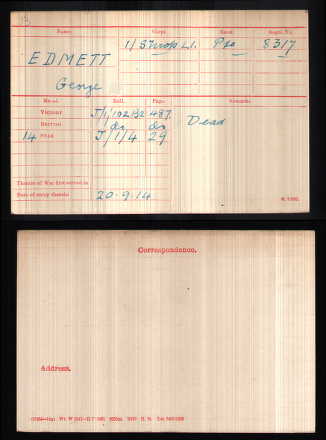 Name. Corps. Rank. Regtl. No.
EDMETT 1/Shrops L.I. Pte 8317
George
Medal. Roll. Page. Remarks.
VICTORY J/1/102 B2 487. Dead
BRITISH do do
14 STAR J/1/4 29
Theatre of War first served in
Date of entry therein 20-9-14
Correspondence.
Address.